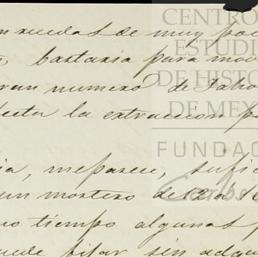 ruedas de muy poc
bastaria para mo
ran numero de
esta la extraccion p
ia, meparece, sufic
un mortero de 12 a
no tiempo algunas p
uede pisar sin adqu
CENTRO
ESTUDI
DE HISTO
DE MEX
FUNDAC
Carlos